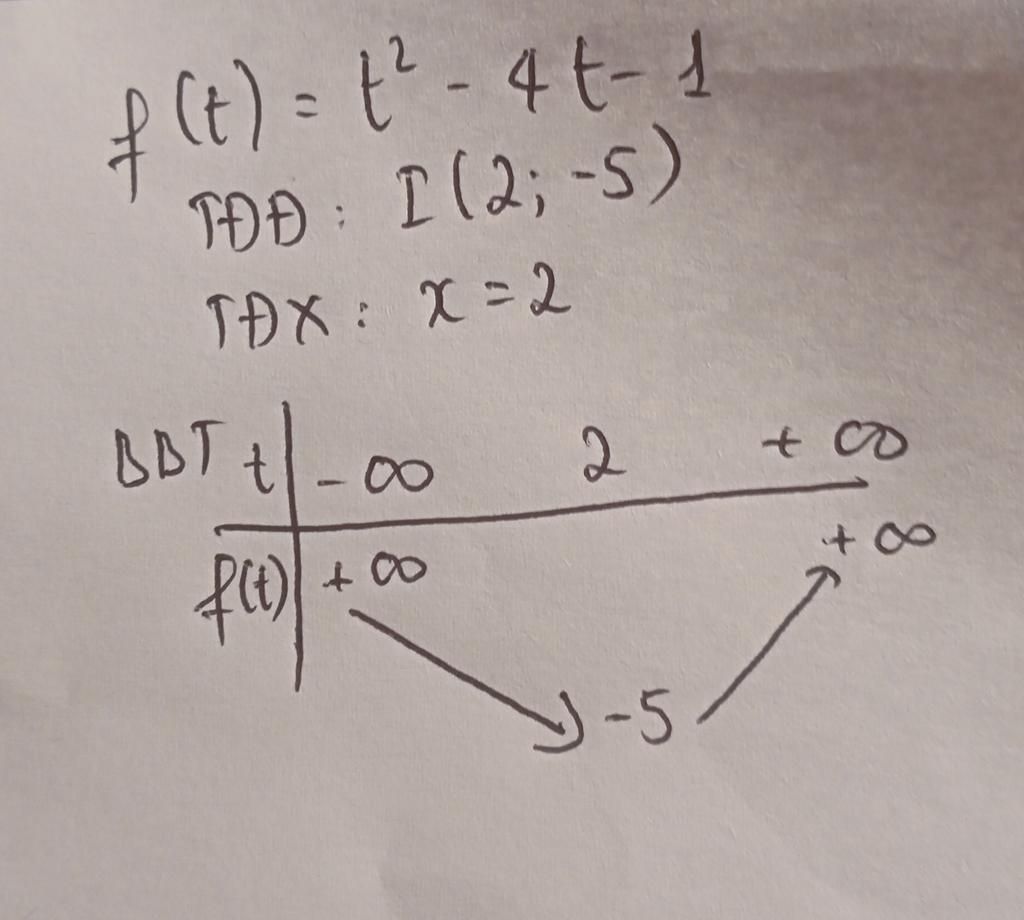 f(t) = t² - 4t - 1
TĐĐ : I(2; -5)
TĐX : x = 2
BBT t | -∞ 2 +∞
f(t) | +∞ -5 +∞